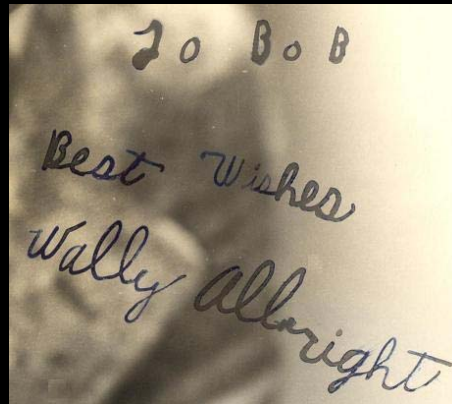 To BoB
Best Wishes
Wally Albright